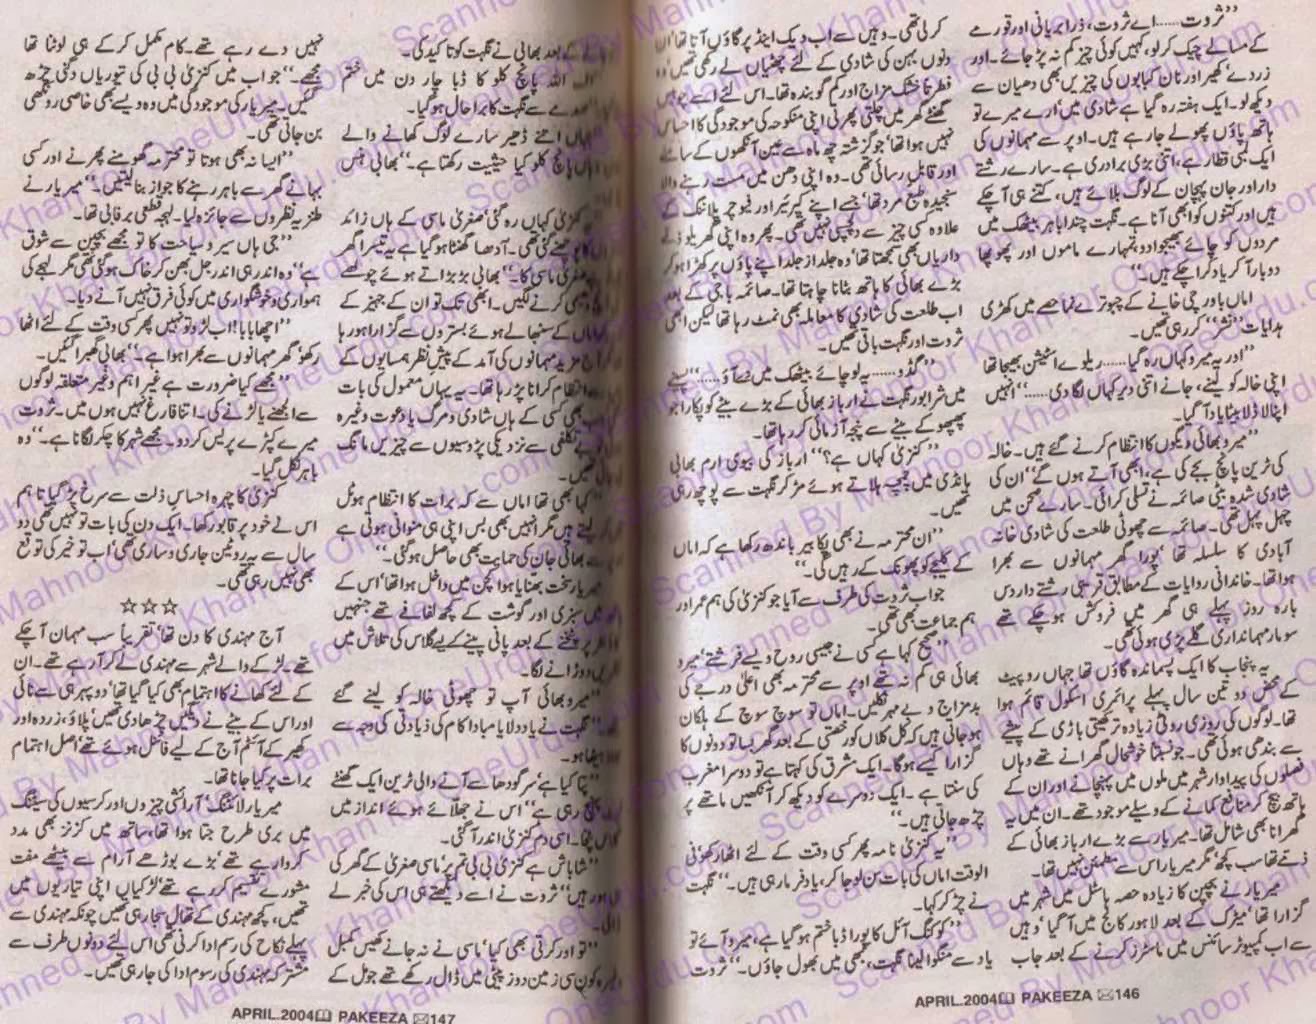 ”ثروت......اے ثروت، ذرا بریانی اور قورمے
کے مسالے چیک کر لو، کہیں کوئی چیز کم نہ پڑ جائے۔ اور
زردے، کھیر اور نان کبابوں کی چیزیں بھی دھیان سے
دیکھ لو۔ ایک ہفتہ رہ گیا ہے شادی میں، ارے میرے تو
ہاتھ پاؤں پھولے جا رہے ہیں۔ اوپر سے مہمانوں کی
ایک لمبی قطار ہے، اتنی بڑی برادری ہے۔ سارے رشتے
دار اور جان پہچان کے لوگ بلائے ہیں، کتنے ہی آچکے
ہیں اور کتنوں کو ابھی آنا ہے۔ نگہت چندا باہر بیٹھک میں
مردوں کو چائے بھیجوا دو، تمہارے ماموں اور پھوپھا
دوبار آکر یاد کرا چکے ہیں۔“
اماں باورچی خانے کے چبوترے نما حصے میں کھڑی
ہدایات ”نشر“ کر رہی تھیں۔
”اور یہ میرو کہاں رہ گیا......ریلوے اسٹیشن بھیجا تھا
اپنی خالہ کو لینے، جانے اتنی دیر کہاں لگا دی......“ انہیں
اپنا لاڈلا بیٹا یاد آگیا۔
”میرو بھائی دیگوں کا انتظام کرنے گئے ہیں۔ خالہ
کی ٹرین پانچ بجے کی ہے، ابھی آتے ہوں گے“ ان کی
شادی شدہ بیٹی صائمہ نے تسلی کرائی۔ سارے صحن میں
چہل پہل تھی۔ صائمہ سے چھوٹی طلعت کی شادی خانہ
آبادی کا سلسلہ تھا، پورا گھر مہمانوں سے بھرا
ہوا تھا۔ خاندانی روایات کے مطابق قریبی رشتے دار دس
بارہ روز پہلے ہی گھر میں فروکش ہو چکے تھے
سو مار مہمانداری گلے پڑی ہوئی تھی۔
یہ پنجاب کا ایک پسماندہ گاؤں تھا جہاں رو پیٹ
کے محض دو تین سال پہلے پرائمری اسکول قائم ہوا
تھا۔ لوگوں کی روزی روٹی زیادہ تر کھیتی باڑی کے پیشے
سے بندھی ہوئی تھی۔ جو نسبتاً خوشحال گھرانے تھے وہاں
فصلوں کی پیداوار شہر میں ملوں میں پہنچانے اور ان کے
ہاتھ بیچ کر منافع کمانے کے وسیلے موجود تھے۔ ان میں یہ
گھرانا بھی شامل تھا۔ میر یار سے بڑے ارباز بھائی کے
ذمے تھا سب کچھ، مگر میر یار اس سے مطمئن نہیں تھا۔
میر یار نے بچپن کا زیادہ حصہ ہاسٹل میں شہر میں
گزارا تھا، میٹرک کے بعد لاہور کالج میں آگیا، وہیں
سے اب کمپیوٹر سائنس میں ماسٹرز کرنے کے بعد جاب
کر لی تھی۔ وہیں سے اب ویک اینڈ پر گاؤں آتا تھا، ان
دنوں بہن کی شادی کے لئے چھٹیاں لے رکھی تھیں، وہ
فطرتاً خشک مزاج اور کم گو بندہ تھا۔ اس لئے اسے چوبیس
گھنٹے گھر میں چلتی پھرتی اپنی منکوحہ کی موجودگی کا احساس
نہیں ہوا تھا، جو گزشتہ چھ ماہ سے عین آنکھوں کے سامنے
اور قابل رسائی تھی۔ وہ اپنی دھن میں مست رہنے والا
سنجیدہ طبع مرد تھا، جسے اپنے کیرئیر اور فیوچر پلاننگ کے
علاوہ کسی چیز سے دلچسپی نہیں تھی۔ پھر وہ اپنی گھریلو ذمے
داریاں بھی سمجھتا تھا، وہ جلد از جلد اپنے پاؤں پر کھڑا ہو کر
بڑے بھائی کا ہاتھ بٹانا چاہتا تھا۔ صائمہ باجی کے بعد
اب طلعت کی شادی کا معاملہ بھی نمٹ رہا تھا لیکن ابھی
ثروت اور نگہت باقی تھیں۔
”گڈو......یہ لو چائے بیٹھک میں دے آؤ......“ پسینے
میں شرابور نگہت نے ارباز بھائی کے بڑے بیٹے کو پکارا جو
پھپھو کے بیٹے سے پنجہ آزمائی کر رہا تھا۔
”کنزیٰ کہاں ہے؟“ ارباز کی بیوی ارم بھابی
ہانڈی میں چمچہ ہلاتے ہوئے مڑ کر نگہت سے پوچھ رہی
تھیں۔
”ان محترمہ نے بھی پکا بیر باندھ رکھا ہے کہ اماں
کے کلیجے کو پھونک کے رہیں گی۔“
جواب ثروت کی طرف سے آیا جو کنزیٰ کی ہم عمر اور
ہم جماعت بھی تھی۔
”صحیح کہا ہے کسی نے جیسی روح ویسے فرشتے، میرو
بھائی ہی کم نہ تھے اوپر سے محترمہ بھی اعلیٰ درجے کی
بدمزاج و بے مہر نکلیں۔ اماں تو سوچ سوچ کے ہلکان
ہو جاتی ہیں کہ کل کلاں کو رخصتی کے بعد گھر بسا تو دونوں کا
گزارا کیسے ہوگا۔ ایک مشرق کی کہتا ہے تو دوسرا مغرب
کی سنتا ہے۔ ایک دوسرے کو دیکھ کر آنکھیں ماتھے پر
چڑھ جاتی ہیں۔“
”یہ کنزیٰ نامہ پھر کسی وقت کے لئے اٹھا رکھو، فی
الوقت اماں کی بات سن لو جا کر، یاد فرما رہی ہیں۔“ نگہت
نے چڑ کر کہا۔
”کوکنگ آئل کا پورا ڈبا ختم ہو گیا ہے، میرو آئے تو
یاد سے منگوا لینا نگہت، کبھی میں بھول جاؤں۔“ ثروت
APRIL.2004 PAKEEZA 146
کے بعد بھابی نے نگہت کو تاکید کی۔
اللہ پانچ کلو کا ڈبا چار دن میں ختم
صدمے سے نگہت کا برا حال ہو گیا۔
ہاں اتنے ڈھیر سارے لوگ کھانے والے
ہاں پانچ کلو کیا حیثیت رکھتا ہے۔“ بھابی ہنس
کنزیٰ کہاں رہ گئی، صغریٰ ماسی کے ہاں زائد
پوچھنے گئی تھی۔ آدھا گھنٹا ہو گیا ہے، یہ تیسرا گھر
صغریٰ ماسی کا۔“ بھابی بڑبڑاتے ہوئے چولھے
کرنے لگیں۔ ابھی تک تو ان کے جہیز کے
کے سنبھالے ہوئے بستروں سے گزارا ہو رہا
مزید مہمانوں کی آمد کے پیش نظر ہمسایوں کے
انتظام کرانا پڑ رہا تھا۔ یہ یہاں معمول کی بات
بھی کسی کے ہاں شادی و مرگ یا دعوت وغیرہ
بے تکلفی سے نزدیکی پڑوسیوں سے چیزیں مانگ
تھیں۔
کہا بھی تھا اماں سے کہ برات کا انتظام ہوٹل
کر لیتے ہیں مگر انہیں بھی بس اپنی ہی منوانی ہوتی ہے
سے بھائی جان کی حمایت بھی حاصل ہو گئی۔“
میر یار سخت بھنایا ہوا کچن میں داخل ہوا تھا، اس کے
میں سبزی اور گوشت کے کچھ لفافے تھے جنہیں
پر پٹخنے کے بعد پانی پینے کے لیے گلاس کی تلاش میں
دوڑانے لگا۔
”میرو بھائی آپ تو چھوٹی خالہ کو لینے گئے
نگہت نے یاد دلایا مبادا کام کی زیادتی کی وجہ سے
بیٹھا ہو۔
”پتا کیا ہے، سرگودھا سے آنے والی ٹرین ایک گھنٹے
پہنچ رہی ہے“ اس نے جھلائے ہوئے انداز میں
اسی دم کنزیٰ اندر آگئی۔
”شاباش ہے کنزیٰ بی بی تم پر، ماسی صغریٰ کے گھر کی
ہو رہیں“ ثروت نے اسے دیکھتے ہی اس کی خبر لے
ڈالی۔
”تو اور کرتی بھی کیا، ماسی نے نہ جانے کھیس کمبل
کون سی زمین دوز پیٹی میں ڈال رکھے تھے جو مل کے
نہیں دے رہے تھے۔ کام مکمل کر کے ہی لوٹنا تھا
مجھے۔“ جواب میں کنزیٰ بی بی کی تیوریاں دگنی چڑھ
گئیں۔ میر یار کی موجودگی میں وہ ویسے بھی خاصی روکھی
بن جاتی تھی۔
”ایسا نہ بھی ہوتا تو محترمہ گھومنے پھرنے اور کسی
بہانے گھر سے باہر رہنے کا جواز بنا لیتیں۔“ میر یار نے
طنزیہ نظروں سے جائزہ لیا۔ لہجہ قطعی برفانی تھا۔
”جی ہاں سیر و سیاحت کا تو مجھے بچپن سے شوق
ہے“ وہ اندر ہی اندر جل بھن کر خاک ہو گئی تھی مگر لہجے کی
ہمواری و خوشگواری میں کوئی فرق نہیں آنے دیا۔
”اچھا بابا! اب لڑو تو نہیں پھر کسی وقت کے لئے اٹھا
رکھو، گھر مہمانوں سے بھرا ہوا ہے۔“ بھابی گھبرا گئیں۔
”مجھے کیا ضرورت ہے غیر اہم و غیر متعلقہ لوگوں
سے الجھنے یا لڑنے کی۔ اتنا فارغ نہیں ہوں میں۔ ثروت
میرے کپڑے پریس کر دو۔ مجھے شہر کا چکر لگانا ہے۔“ وہ
باہر نکل گیا۔
کنزیٰ کا چہرہ احساس ذلت سے سرخ پڑ گیا تاہم
اس نے خود پر قابو رکھا۔ ایک دن کی بات تو نہیں تھی دو
سال سے یہ روٹین جاری و ساری تھی، اب تو خیر کی توقع
بھی نہیں رہی تھی۔
☆☆☆
آج مہندی کا دن تھا، تقریباً سب مہمان آچکے
تھے۔ لڑکے والے شہر سے مہندی لے کر آ رہے تھے۔ ان
کے لئے کھانے کا اہتمام بھی کیا گیا تھا، دوپہر ہی سے نائی
اور اس کے بیٹے نے دیگیں چڑھا دی تھیں، پلاؤ، زردہ اور
کھیر کے آئٹم آج کے لیے فائنل ہوئے تھے، اصل اہتمام
برات پر کیا جانا تھا۔
میر یار لائٹنگ، آرائشی چیزوں اور کرسیوں کی سیٹنگ
میں بری طرح جتا ہوا تھا، ساتھ میں کزنز بھی مدد
کروا رہے تھے، بڑے بوڑھے آرام سے بیٹھے مفت
مشورے تقسیم کر رہے تھے، لڑکیاں اپنی تیاریوں میں
تھیں، کچھ مہندی کے تھال سجا رہی تھیں چونکہ مہندی سے
پہلے نکاح کی رسم ادا کرنی تھی اس لئے دونوں طرف سے
مشترکہ مہندی کی رسوم ادا کی جا رہی تھیں۔
APRIL.2004 PAKEEZA 147